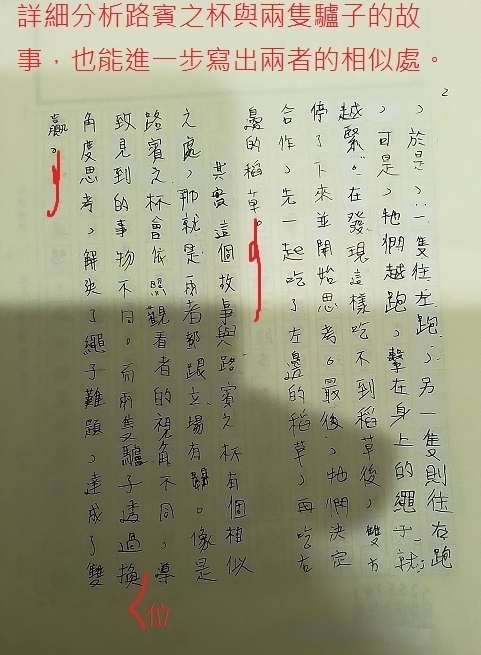 詳細分析路賓之杯與兩隻驢子的故
事，也能進一步寫出兩者的相似處。
2
，於是，一隻往左跑，另一隻則往右跑
，可是，牠們越跑，繫在身上的繩子就
越緊。在發現這樣吃不到稻草後，雙方
停了下來並開始思考。最後，牠們決定
合作，先一起吃了左邊的稻草，再吃右
邊的稻草。
其實這個故事與路賓之杯有個相似
之處，那就是兩者都跟立場有關。像是
路賓之杯會依照觀看者的視角不同，導
致見到的事物不同。而兩隻驢子透過換
角度思考，解決了繩子難題，達成了雙
贏。
位